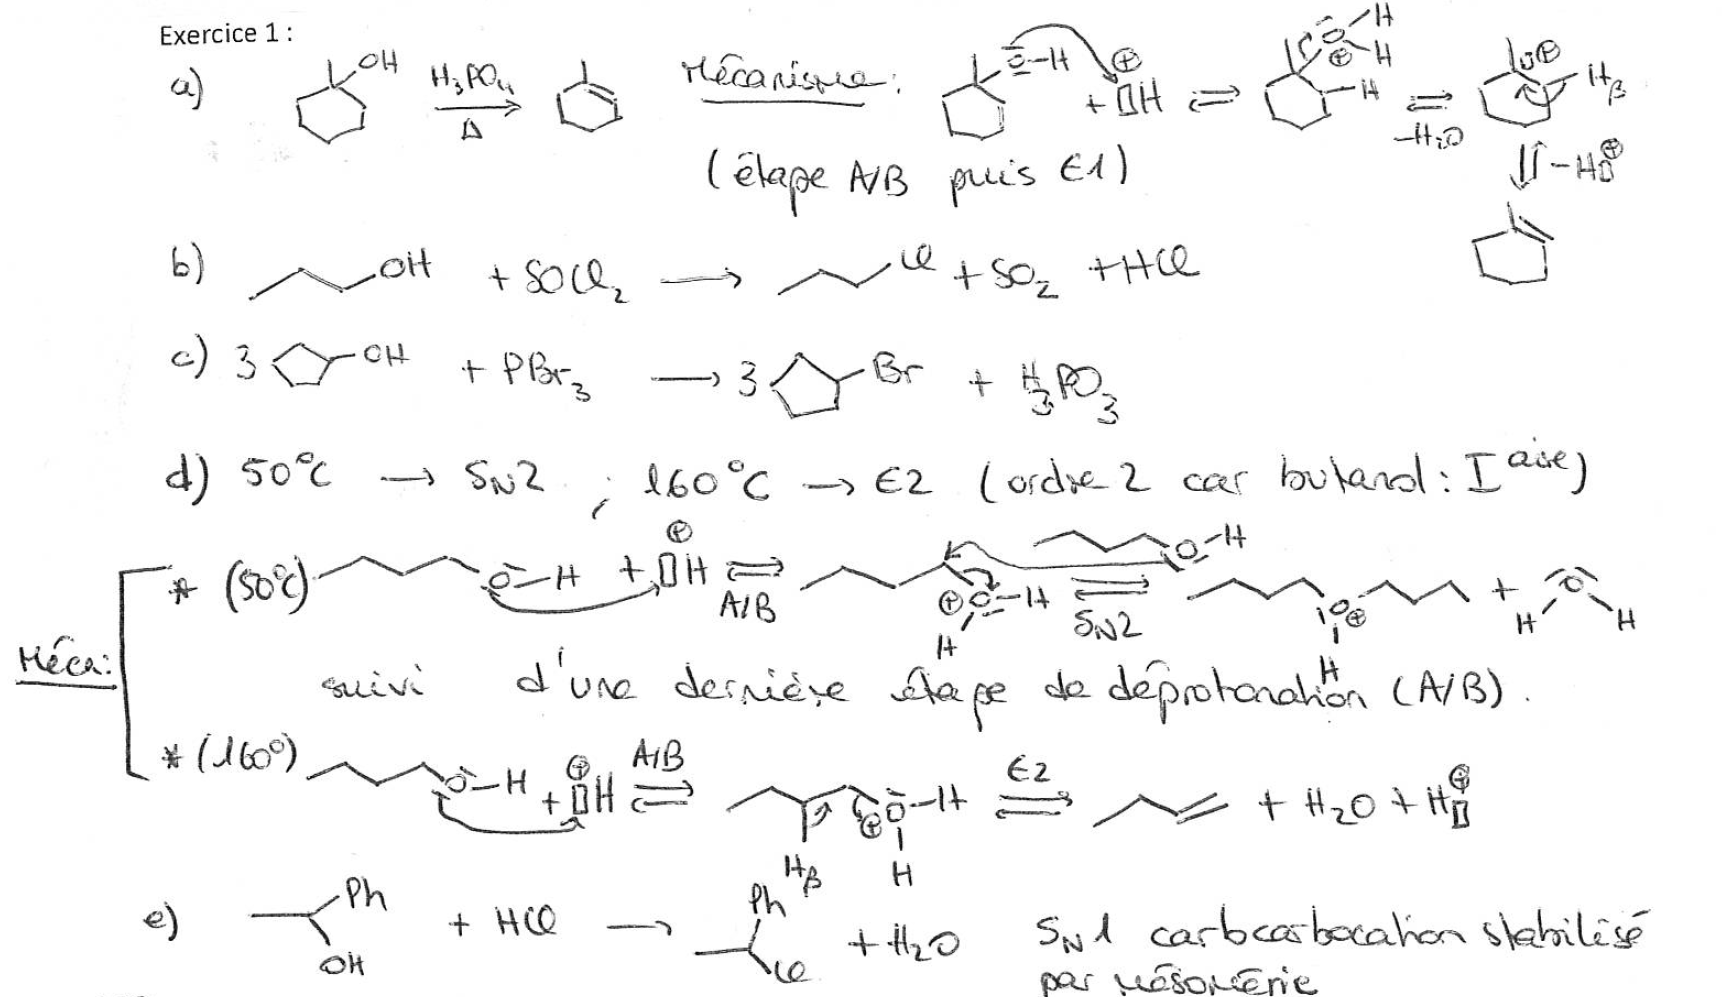 Exercice 1 :
a) OH H₃PO₄ Δ Mécanisme : O-H + H⊕ ⇌ O-H H ⊕ H ⇌ -H₂O ⊕ Hβ
(étape A/B puis E1) -H⊕
b) OH + SOCl₂ → Cl + SO₂ + HCl
c) 3 OH + PBr₃ → 3 Br + H₃PO₃
d) 50°C → SN2 ; 160°C → E2 (ordre 2 car butanol : Iaire)
Méca:
* (50°C) O-H + H⊕ ⇌ A/B ⊕ O-H H O-H ⇌ SN2 O⊕ H + O H H
suivi d'une dernière étape de déprotonation (A/B).
* (160°) O-H + H⊕ A/B ⇌ Hβ ⊕ O-H H E2 ⇌ + H₂O + H⊕
e) Ph OH + HCl → Ph Cl + H₂O SN1 carbocarbocation stabilisé
par mésomérie